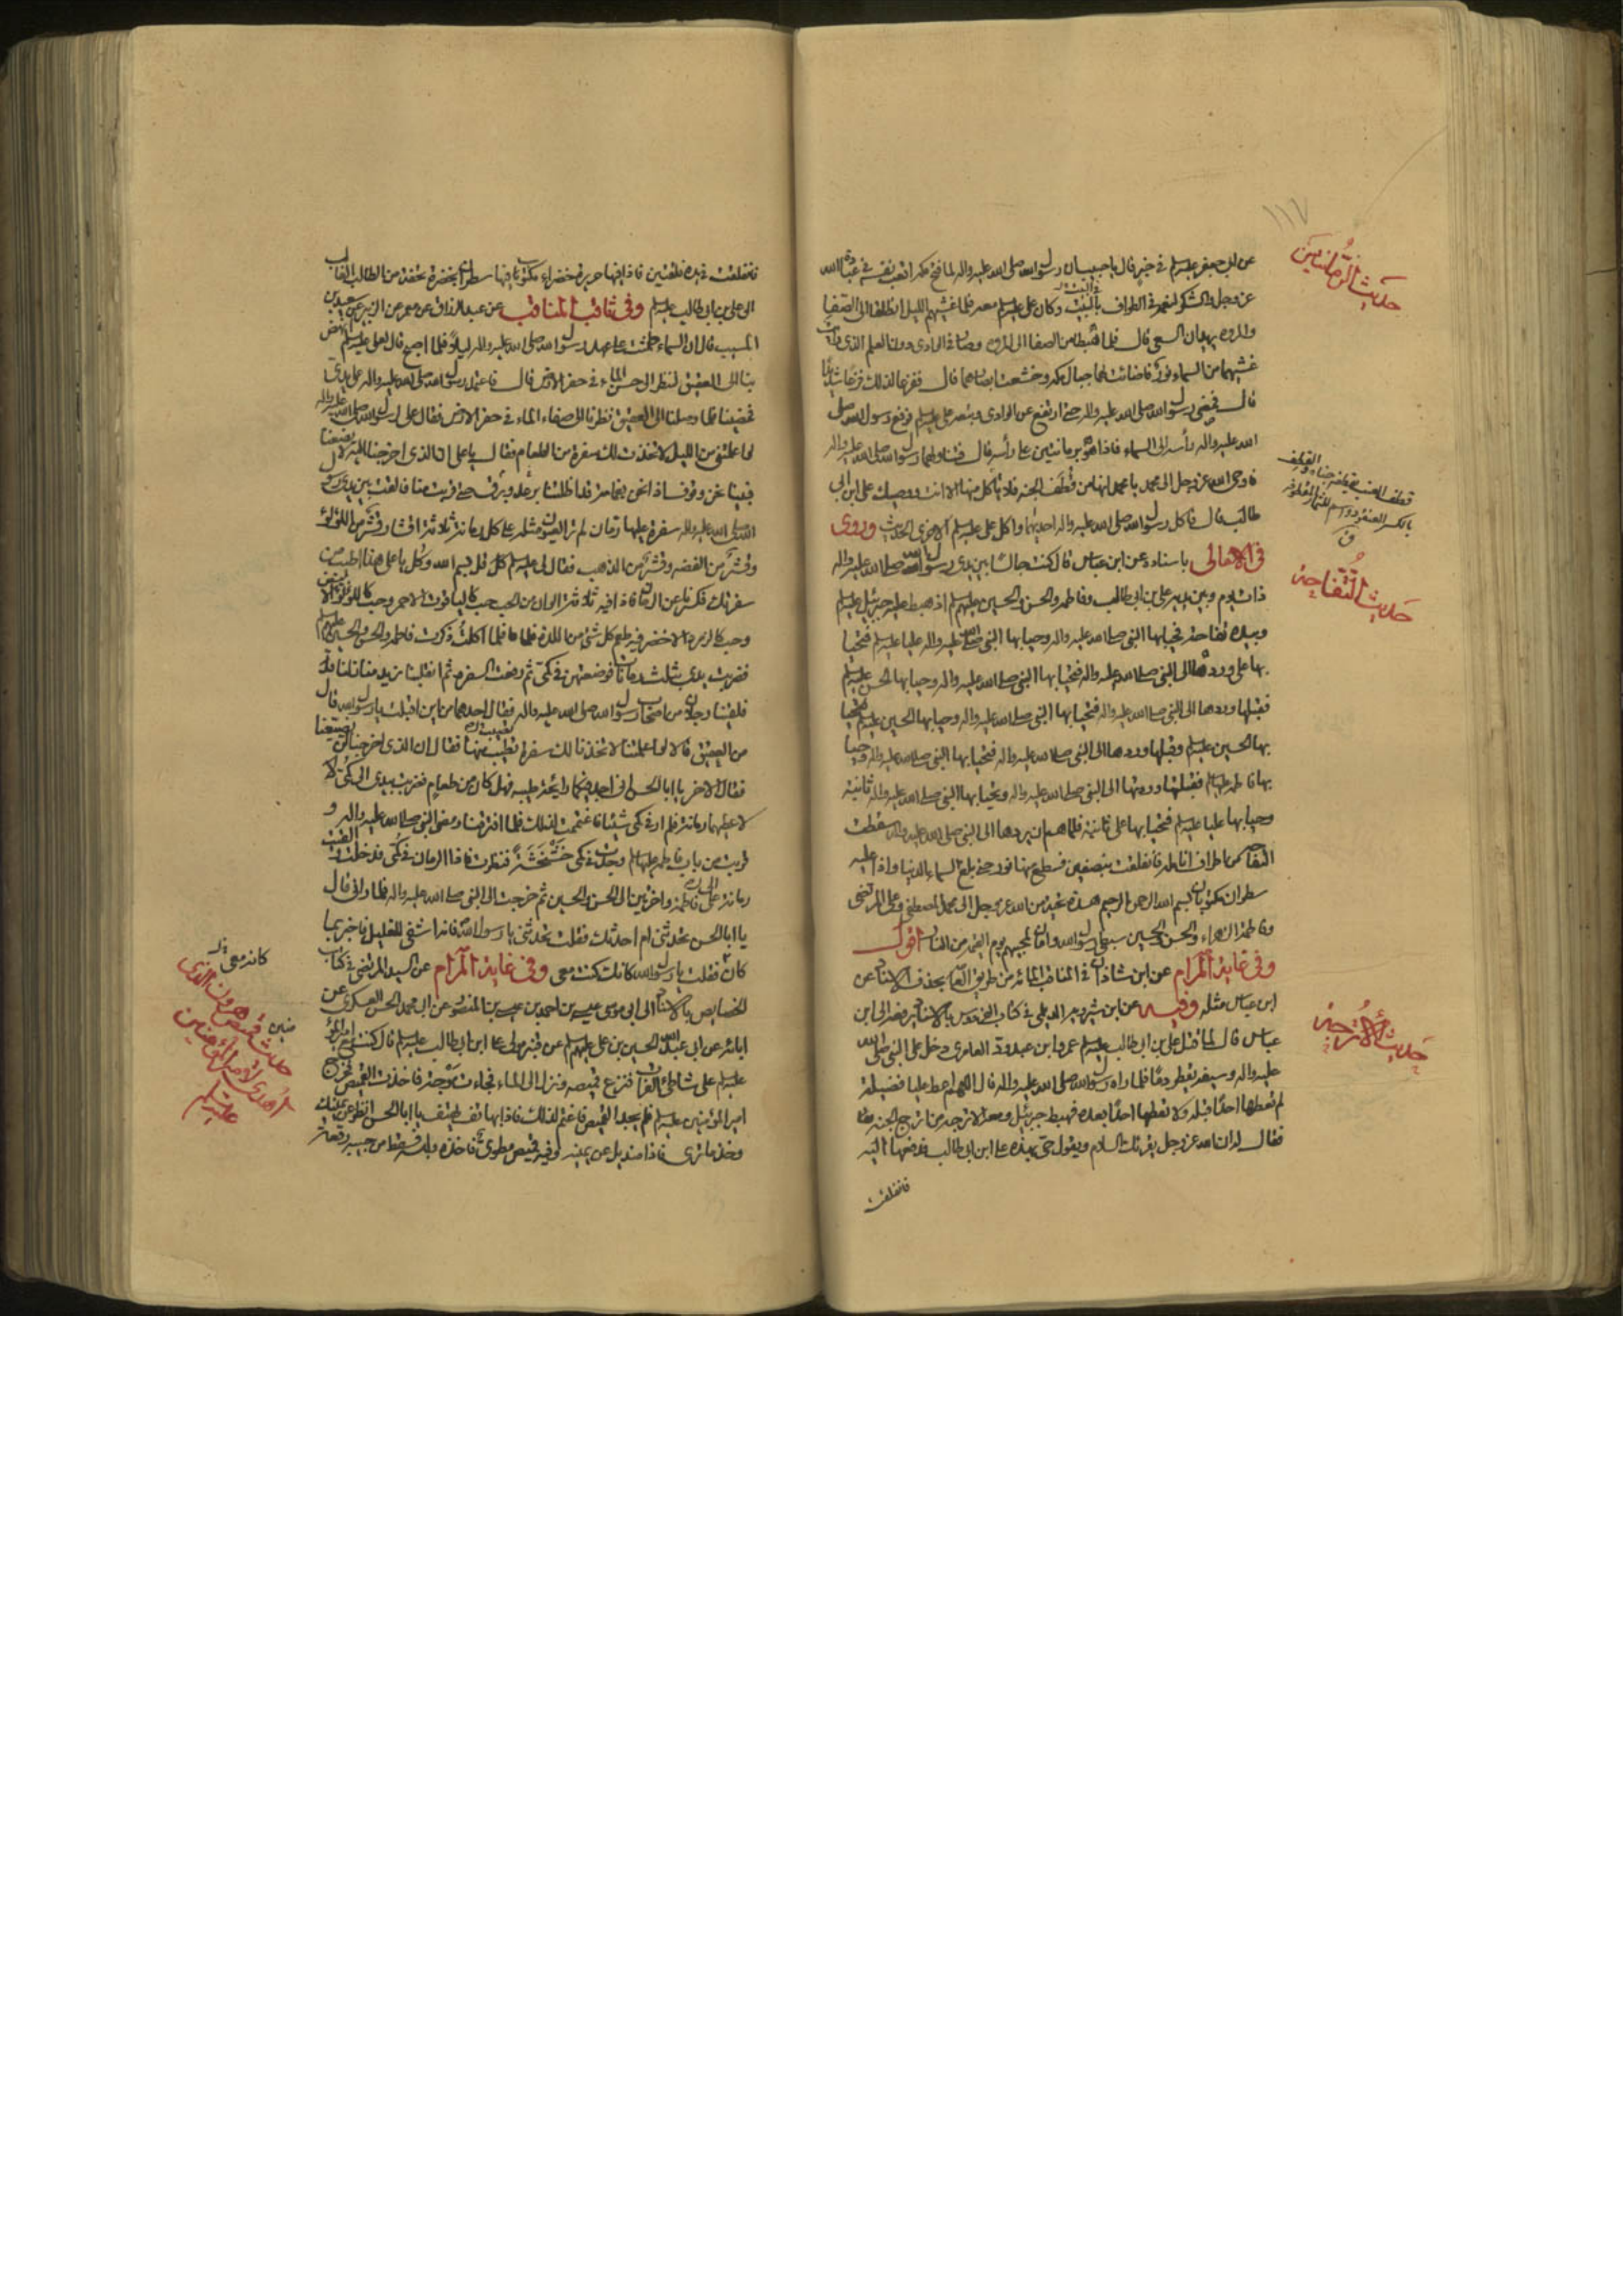 ١١٧
حديث الرمانتين
عن ابي جعفر عليه السلم في خبر قال يا حبيب ان رسول الله صلى الله عليه واله لما فتح مكه اتعب نفسه في عبادة الله
عز وجل والشكر لنعمه في الطواف بالبيت وكان علي عليه السلم معه فلما غشيهم الليل انطلقا الى الصفا
والمروه يريدان السعي قال فلما هبطا من الصفا الى المروه وصارا في الوادى دون العلم الذى رايت
غشيهما من السماء نور فاضائت لهما جبال مكه وخشعت ابصارهما قال ففزعا لذلك فزعا شديدا
قال فمضى رسول الله صلى الله عليه واله حتى ارتفع عن الوادى وتبعه علي عليه السلم فرفع رسول الله صلى
الله عليه واله رأسه الى السماء فاذا هو برمانتين على رأسه قال فتناولهما رسول الله صلى الله عليه واله
فاوحى الله عز وجل الى محمد يا محمد انها من قطف الجنه فلا ياكل منها الا انت ووصيك علي ابن ابي
طالب قال فاكل رسول الله صلى الله عليه واله احديهما واكل علي عليه السلم الاخرى الحديث وروى
حديث التفاحة
في الامالى باسناده عن ابن عباس قال كنت جالسا بين يدى رسول الله صلى الله عليه واله
ذات يوم وبين يديه علي بن ابي طالب وفاطمه والحسن والحسين عليهم السلم اذ هبط عليه جبرئيل عليه السلم
وبيده تفاحة فحيا بها النبي صلى الله عليه واله وحيا بها النبي صلى الله عليه واله عليا عليه السلم فتحيا
بها علي وردها الى النبي صلى الله عليه واله فتحيا بها النبي صلى الله عليه واله وحيا بها الحسن عليه السلم
فقبلها وردها الى النبي صلى الله عليه واله فتحيا بها النبي صلى الله عليه واله وحيا بها الحسين عليه السلم فتحيا
بها الحسين عليه السلم وقبلها وردها الى النبي صلى الله عليه واله فتحيا بها النبي صلى الله عليه واله وحيا
بها فاطمه عليها السلم فقبلتها وردتها الى النبي صلى الله عليه واله وتحيا بها النبي صلى الله عليه واله ثانية
وحيا بها عليا عليه السلم فتحيا بها علي ثانية فلما هم ان يردها الى النبي صلى الله عليه واله سقطت
التفاحة من اطراف انامله فانفلقت بنصفين فسطع منها نور حتى بلغ السماء الدنيا واذا عليه
سطران مكتوبان بسم الله الرحمن الرحيم هذه تحية من الله عز وجل الى محمد المصطفى وعلي المرتضى
وفاطمة الزهراء والحسن والحسين سبطي رسول الله وامان لمحبيهم يوم القيمه من النار اقول
وفي غاية المرام عن ابن شاذان في المناقب المائه من طريق العامة بحذف الاسناد عن
حديث الاترجة
ابن عباس مثله وفيه عن ابن شيرويه الديلمي في كتاب الفردوس بالاسناد يرفعه الى ابن
عباس قال لما قتل علي بن ابي طالب عليه السلم عمرو ابن عبد ود العامرى دخل على النبي صلى الله
عليه واله وسيفه يقطر دما فلما راه رسول الله صلى الله عليه واله قال اللهم اعط عليا فضيلة
لم تعطها احدا قبله ولا تعطها احدا بعده فهبط جبرئيل ومعه الاترجه من اترج الجنه
فقال له ان الله عز وجل يقرئك السلام ويقول حي بهذه علي ابن ابي طالب فدفعها اليه
فانفلقت
فانفلقت في يده فلقتين فاذا فيها حريرة خضراء مكتوب فيها سطران بخضرة تحفة من الطالب الغالب
الى علي بن ابي طالب عليه السلم وفي ثاقب المناقب عن عبد الرزاق عن معمر عن الزهرى عن سعيد بن
المسيب قال ان السماء طشت على عهد رسول الله صلى الله عليه واله ليلا فلما اصبح قال لعلي عليه السلم انهض
بنا الى العقيق لننظر الى حسن الماء في حفر الارض قال فاعتمد رسول الله صلى الله عليه واله على يدى
فمضينا فلما وصلنا الى العقيق نظرنا الى صفاء الماء في حفر الارض فقال علي لرسول الله صلى الله عليه واله
لو اعلمتني من الليل لاتخذت لك سفرة من الطعام فقال يا علي ان الذى اخرجنا اليه لا يضيعنا
فبينا نحن وقوف اذ نحن بغمامة قد اظلتنا برعد وبرق حتى قربت منا فالقت بين يدى رسول
الله صلى الله عليه واله سفرة عليها رمان لم تر العيون مثله على كل رمانة ثلاثة اقشار قشر من اللؤلؤ
وقشر من الفضه وقشر من الذهب فقال لي عليه السلم كل قل بسم الله وكل يا علي هذا اطيب من
سفرتك فكسرنا عن الرمان فاذا فيه ثلاثة الوان من الحب حب كالياقوت الاحمر وحب كاللؤلؤ الابيض
وحب كالزمرد الاخضر فيه طعم كل شئ من اللذة فلما اكلت ذكرت فاطمه والحسن والحسين عليهم السلم
فضربت بيدى بثلث رمانات فوضعتهن في كمي ثم رفعت السفره ثم انقلبنا نريد منازلنا
فلقينا رجلان من اصحاب رسول الله صلى الله عليه واله فقال احدهما من اين اقبلت يا رسول الله قال
من العقيق قال لو اعلمتنا لاتخذنا لك سفرة تصيب منها فقال ان الذى اخرجنا لن يضيعنا
فقال الاخر يا ابا الحسن اني اجد منكما رائحة طيبه فهل كان من طعام فضربت بيدى الى كمي
لاعطيهما رمانة فلم ار في كمي شيئا فاغتممت لذلك فلما افترقنا ومضى النبي صلى الله عليه واله و
قربت من باب فاطمه عليها السلم وجدت في كمي خشخشة فنظرت فاذا الرمان في كمي فدخلت والقيت
رمانة الى فاطمة واخريين الى الحسن والحسين ثم خرجت الى النبي صلى الله عليه واله فلما راني قال
يا ابا الحسن تحدثني ام احدثك فقلت تحدثني يا رسول الله فانه اشفى للغليل فاخبر بما
كان فقلت يا رسول الله كانك كنت معي وفي غاية المرام عن السيد المرتضى في كتاب
الخصايص بالاسناد الى ابي موسى عيسى بن احمد بن عيسى بن المنصور عن ابي محمد الحسن العسكرى عن
ابائه عن ابي عبد الله الحسين بن علي عليهم السلم عن قنبر مولى علي ابن ابي طالب عليه السلم قال كنت مع امير المؤمنين
عليه السلم على شاطئ الفرات فنزع قميصه ونزل الى الماء فجاءت موجة فاخذت القميص فخرج
امير المؤمنين عليه السلم فلم يجد القميص فاغتم لذلك فاذا بهاتف يهتف يا ابا الحسن انظر عن يمينك
وخذ ما ترى فاذا منديل عن يمينه وفيه قميص مطوى فاخذه ولبسه فسقط من جيبه رقعة
كانه معي
حديث قميص هرون الذى
اهدى الى امير المؤمنين
عليه السلم